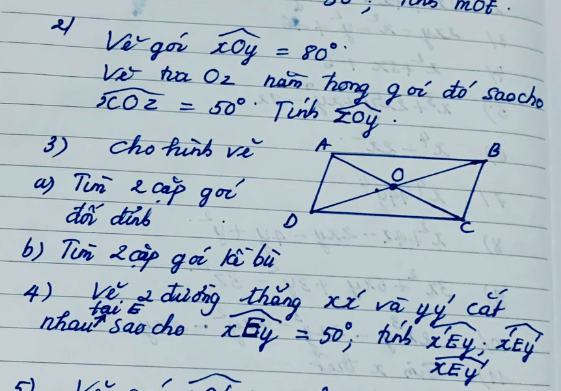 Tính mOt.
2) Vẽ gói xOy = 80°.
Vẽ tia Oz nằm trong gói đó saocho
xOz = 50°. Tính zOy.
3) Cho hình vẽ
A B
O
a) Tìm 2 cặp gói
đối đỉnh
D C
b) Tìm 2 cặp gói kề bù
4) Vẽ 2 đường thẳng xx' và yy' cắt
nhau tại E sao cho xEy = 50°, tính x'Ey; x'Ey'
xEy'